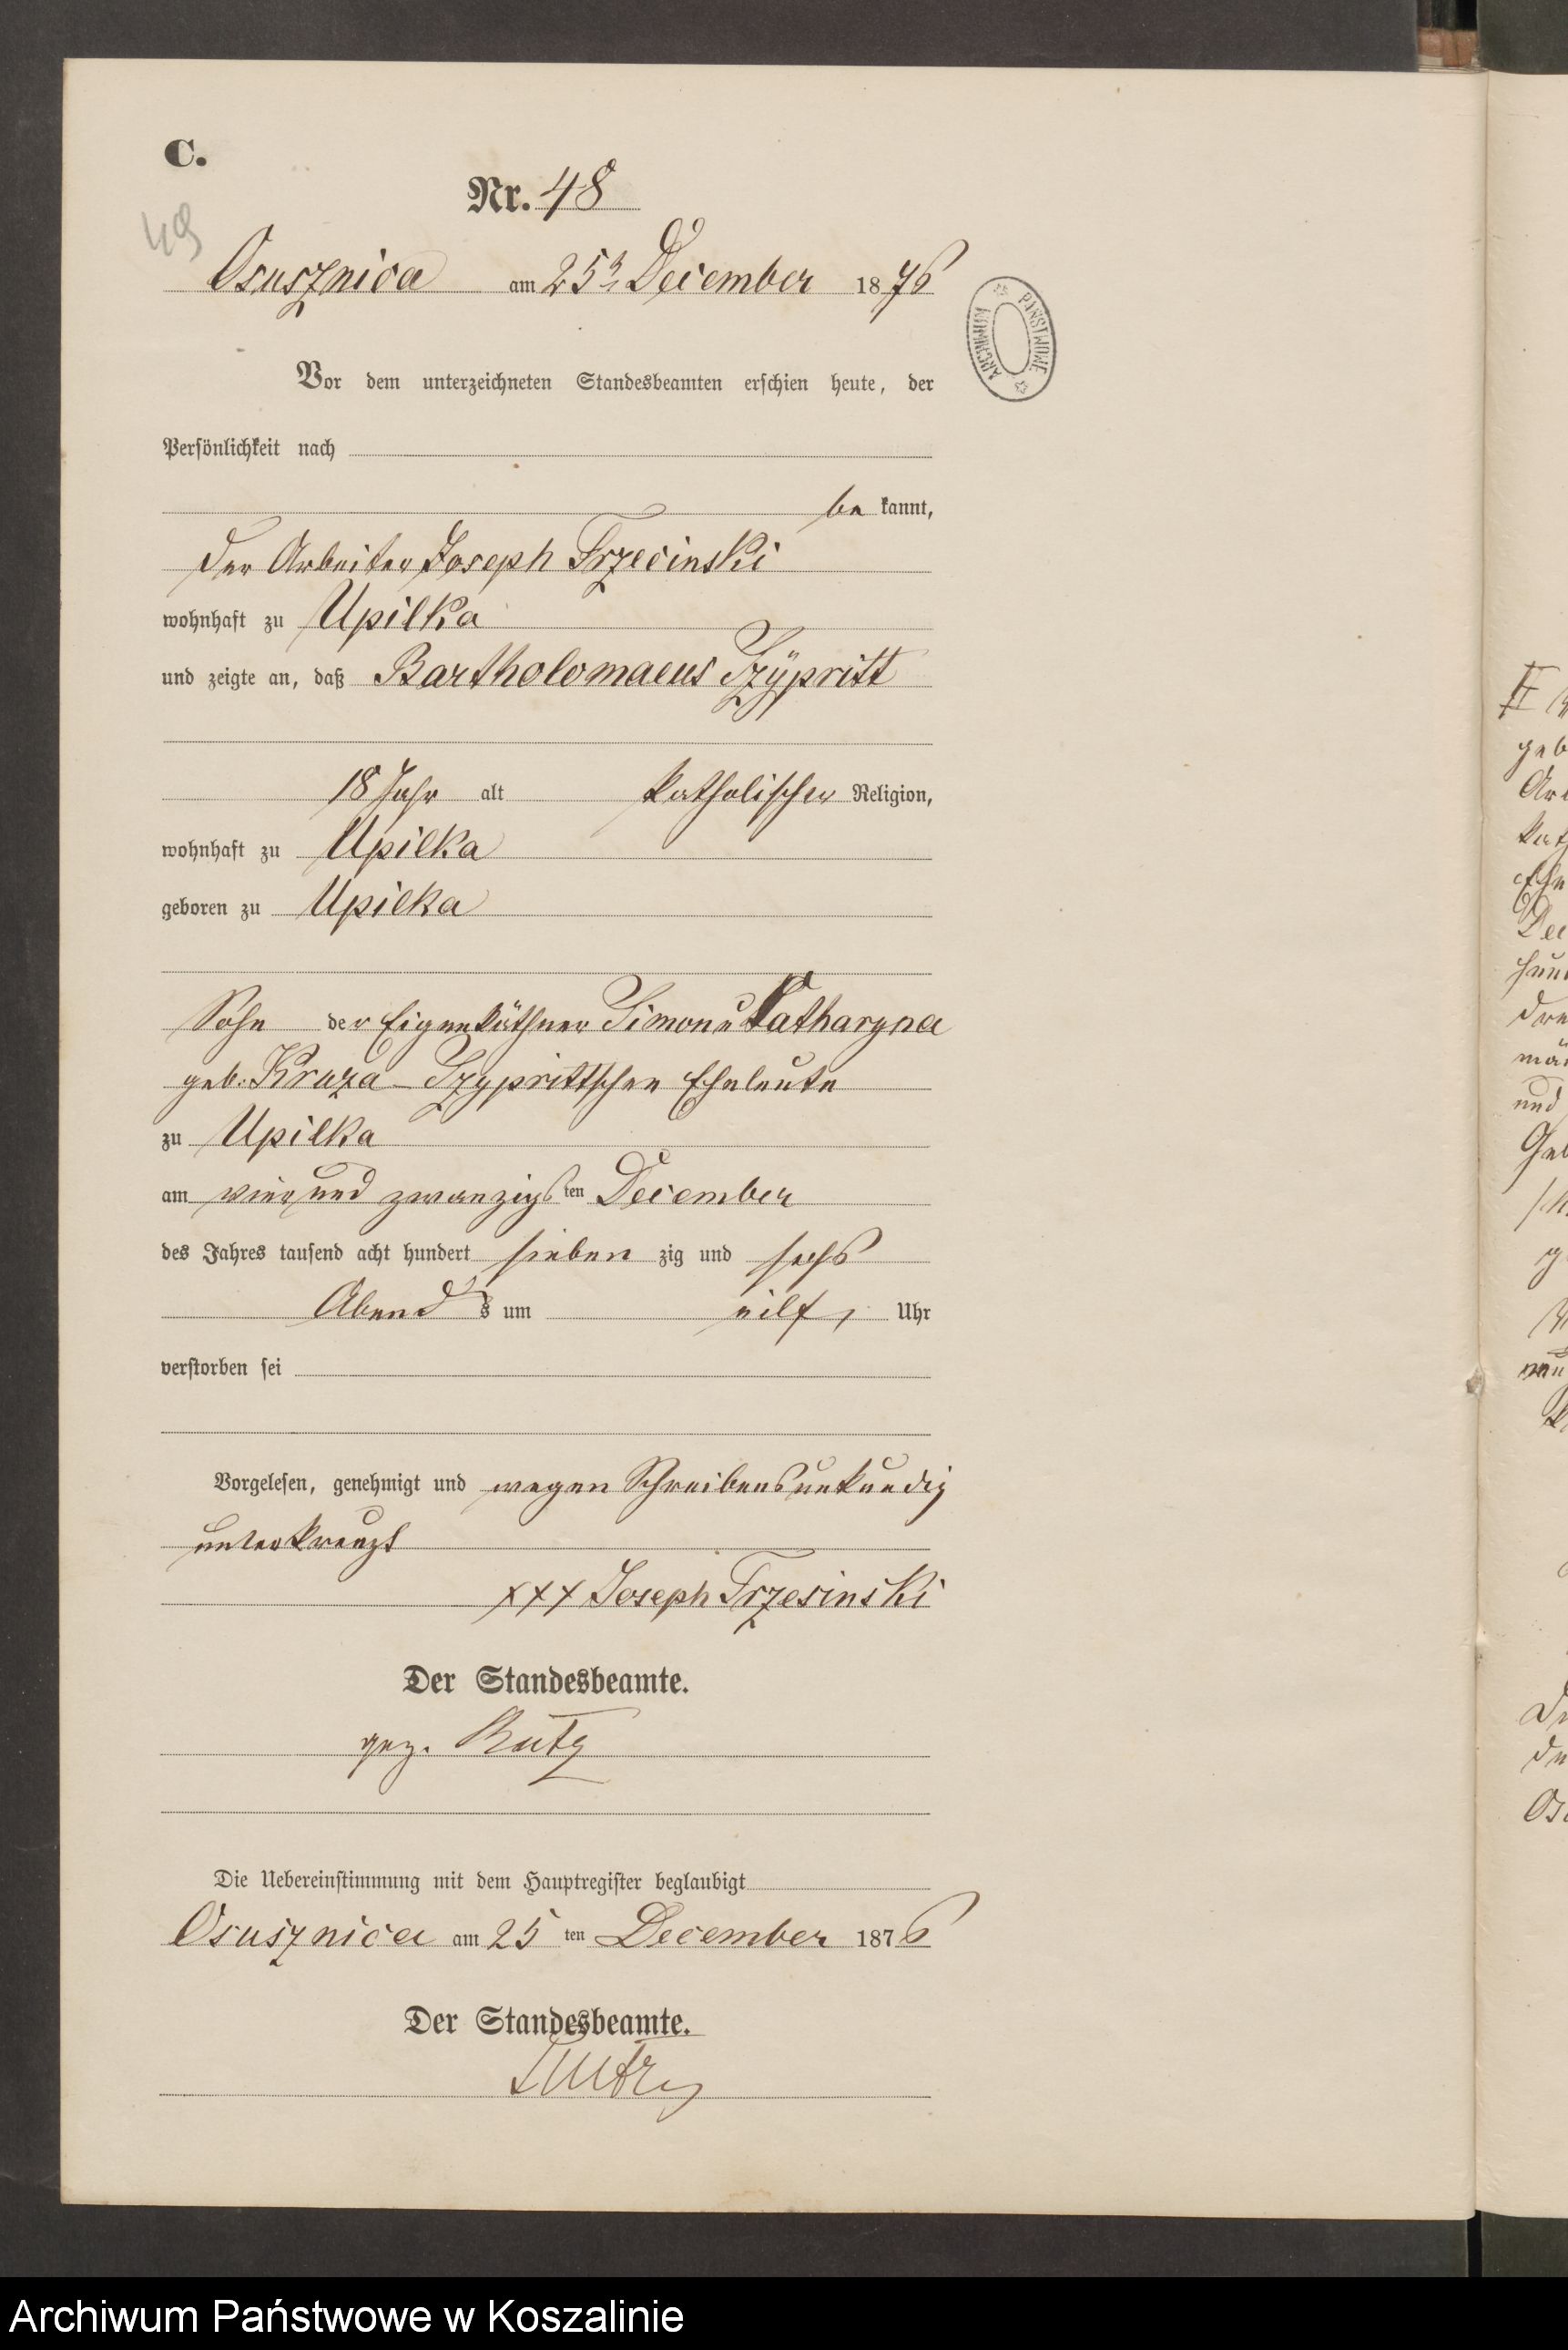 C.
Nr. 48
49
Osusznica am 25n December 1876
ARCHIWUM PAŃSTWOWE
Vor dem unterzeichneten Standesbeamten erschien heute, der
Persönlichkeit nach
be kannt,
der Arbeiter Joseph Trzecinski
wohnhaft zu Upilka
und zeigte an, daß Bartholomaeus Szÿpritt
18 Jahr alt katholischer Religion,
wohnhaft zu Upilka
geboren zu Upilka
Sohn der Eigenkäthner Simon u Katharyna
geb. Kruza - Szyprittschen Eheleute
zu Upilka
am vier und zwanzigsten December
des Jahres tausend acht hundert sieben zig und sechs
Abends um eilf, Uhr
verstorben sei
Vorgelesen, genehmigt und wegen Schreibensunkundig
unterkreuzt
xxx Joseph Trzesinski
Der Standesbeamte.
gez.
Die Uebereinstimmung mit dem Hauptregister beglaubigt
Osusznica am 25 ten December 1876
Der Standesbeamte.
Archiwum Państwowe w Koszalinie